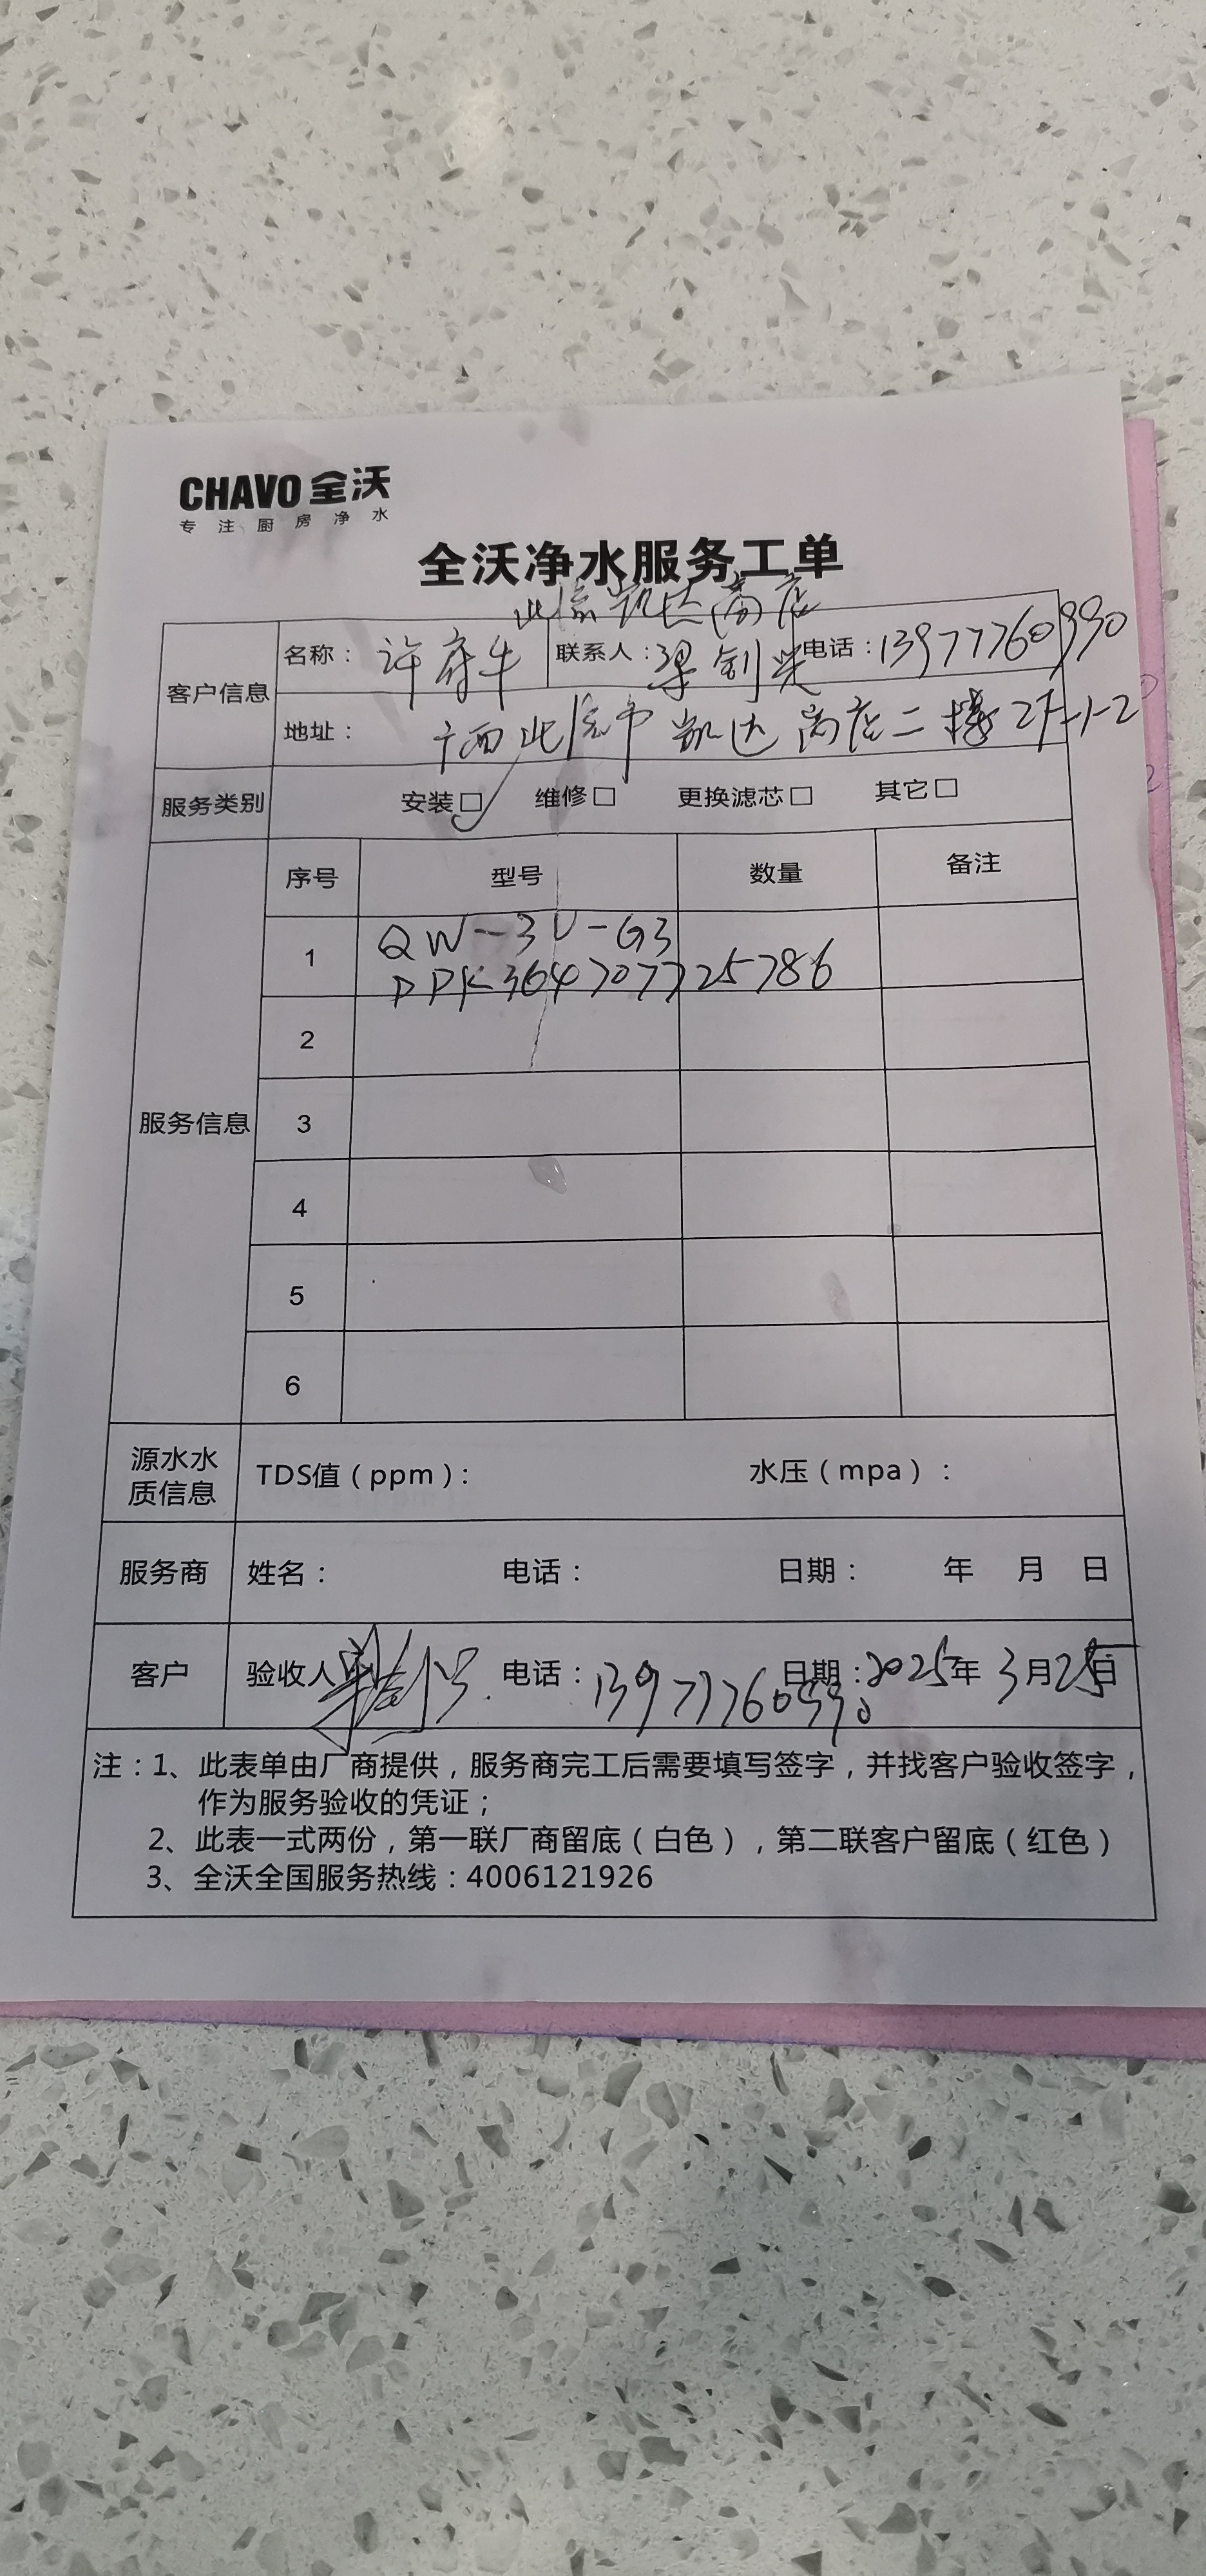 CHAVO 全沃
专注厨房净水
全沃净水服务工单
凯达商店
客户信息 名称： 许府牛 联系人：梁钊兴 电话：13977760990
地址： 广西北海市凯达商店二楼2F-1-2
服务类别 安装□ 维修□ 更换滤芯□ 其它□
服务信息 序号 型号 数量 备注
1 QW-3U-G3
DPK364707725786
2
3
4
5
6
源水水质信息 TDS值（ppm）： 水压（mpa）：
服务商 姓名： 电话： 日期： 年 月 日
客户 验收人 梁钊兴 电话：13977760990 日期：2025年3月25日
注：1、此表单由厂商提供，服务商完工后需要填写签字，并找客户验收签字，
作为服务验收的凭证；
2、此表一式两份，第一联厂商留底（白色），第二联客户留底（红色）
3、全沃全国服务热线：4006121926